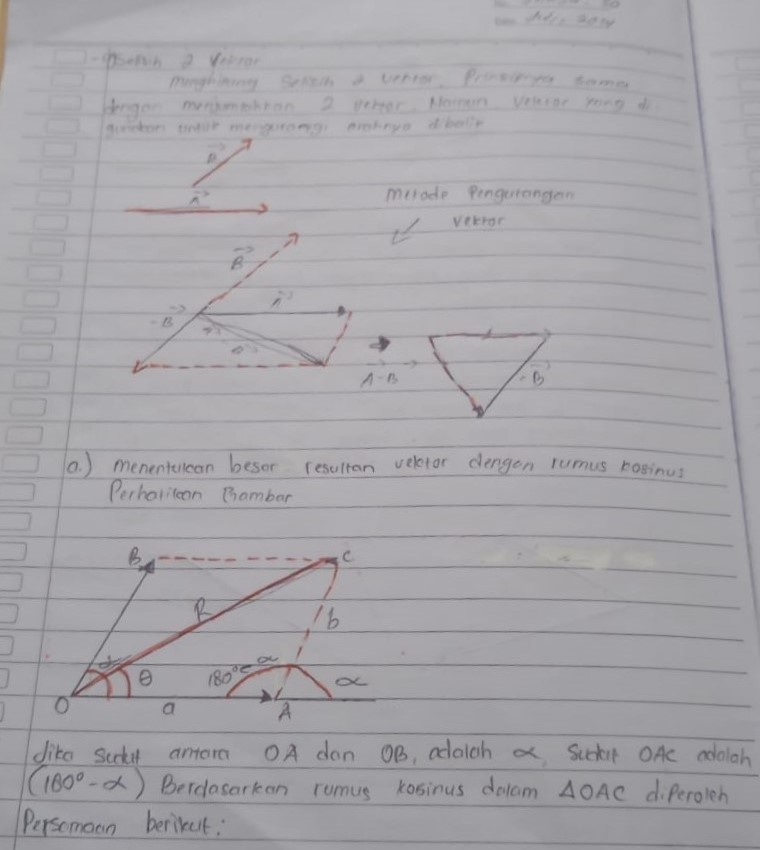 2 Vektor
menghitung selisih 2 vektor, Prinsipnya sama
dengan menjumlahkan 2 vektor, Namun vektor yang di
gunakan untuk mengurangi arahnya dibalik
B
A
metode Pengurangan
vektor
B
A
-B
A-B
-B
a.) menentukan besar resultan vektor dengan rumus kosinus
Perhatikan Gambar
B
C
R
b
α
θ
180° - α
α
O
a
A
Jika sudut antara OA dan OB, adalah α, sudut OAC adalah
(180° - α) Berdasarkan rumus kosinus dalam ΔOAC diperoleh
Persamaan berikut: